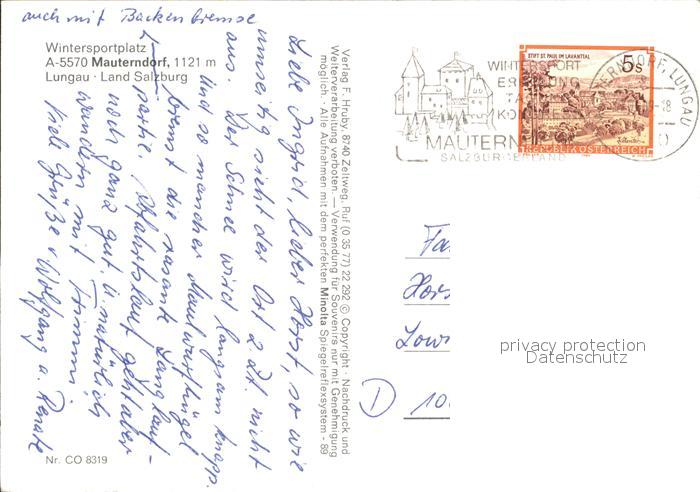 auch mit Backenbremse
Wintersportplatz
A-5570 Mauterndorf, 1121 m
Lungau · Land Salzburg
Liebe Ingrid, lieber Horst, so wie
umseitig sieht der Ort z Zt nicht
aus. Der Schnee wird langsam knapp.
und so mancher Maulwurfhügel
bremst die rasante Langlauf-
partie, Abfahrtslauf geht aber
noch ganz gut. u. natürlich
wandern mit
Viele Grüße v. Wolfgang u. Renate
Nr. CO 8319
Verlag F. Hruby, 8740 Zeltweg, Ruf (0 35 77) 22 292 © Copyright · Nachdruck und
Weiterverarbeitung verboten. — Verwendung für Souvenirs nur mit Genehmigung
möglich. - Alle Aufnahmen mit dem perfekten Minolta Spiegelreflexsystem - 89
WINTERSPORT
MAUTERN
SALZBURGERLAND
STIFT ST. PAUL IM LAVANTTAL
5 S
REPUBLIK ÖSTERREICH
ERNDORF, LUNGAU
-18
Fa
Hors
Low
D 10
privacy protection
Datenschutz